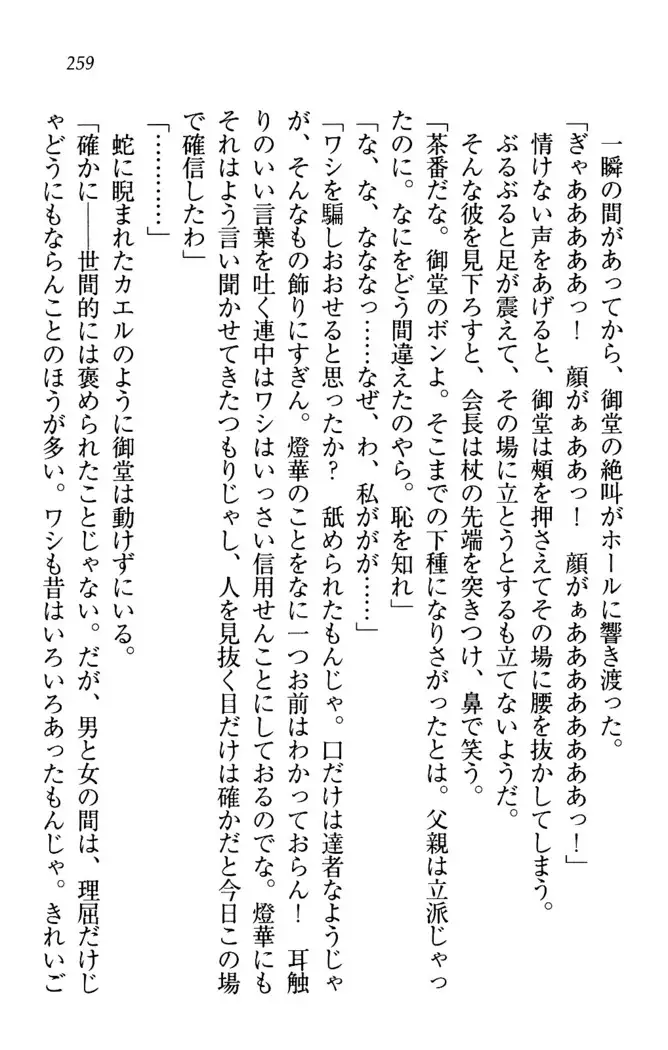 259
一瞬の間があってから、御堂の絶叫がホールに響き渡った。
「ぎゃああああああっ！　顔がぁああっ！　顔がぁああああああああっ！」
情けない声をあげると、御堂は頬を押さえてその場に腰を抜かしてしまう。
ぶるぶると足が震えて、その場に立とうとするも立てないようだ。
そんな彼を見下ろすと、会長は杖の先端を突きつけ、鼻で笑う。
「茶番だな。御堂のボンよ。そこまでの下種になりさがったとは。父親は立派じゃっ
たのに。なにをどう間違えたのやら。恥を知れ」
「な、な、なななっ……なぜ、わ、私ががが……」
「ワシを騙しおおせると思ったか？　舐められたもんじゃ。口だけは達者なようじゃ
が、そんなもの飾りにすぎん。燈華のことをなに一つお前はわかっておらん！　耳触
りのいい言葉を吐く連中はワシはいっさい信用せんことにしておるのでな。燈華にも
それはよう言い聞かせてきたつもりじゃし、人を見抜く目だけは確かだと今日この場
で確信したわ」
「…………」
蛇に睨まれたカエルのように御堂は動けずにいる。
「確かに――世間的には褒められたことじゃない。だが、男と女の間は、理屈だけじ
ゃどうにもならんことのほうが多い。ワシも昔はいろいろあったもんじゃ。きれいご